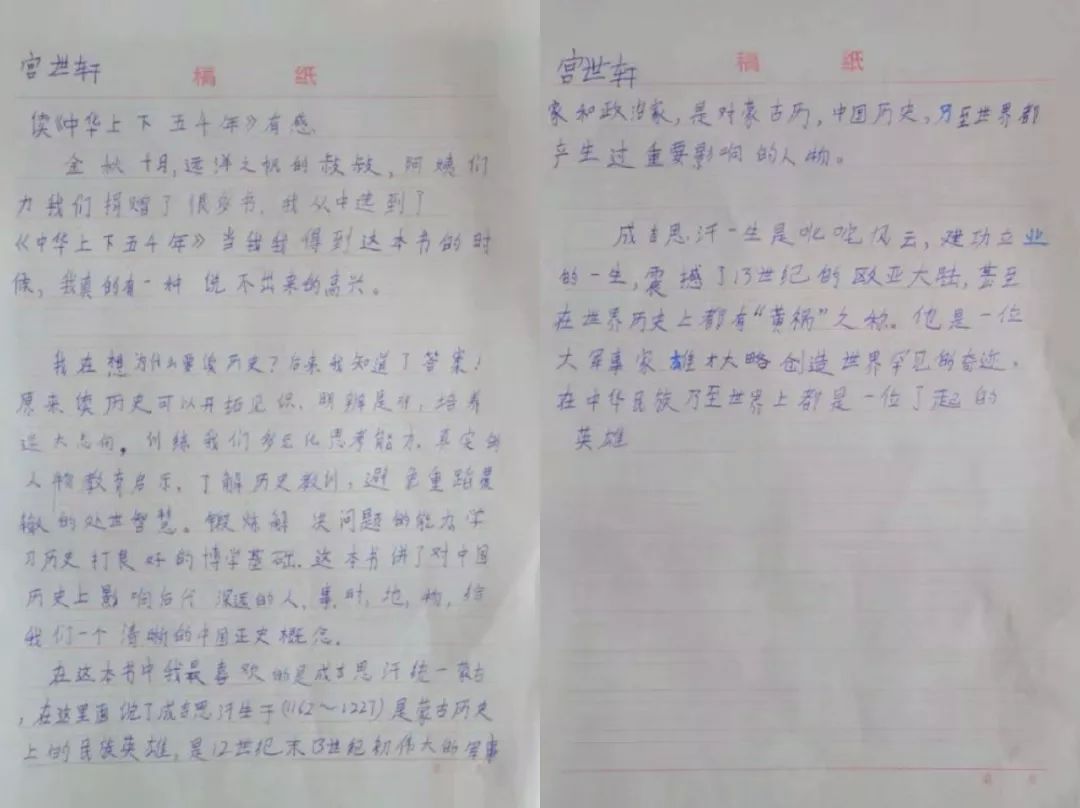 宫世轩
稿 纸
读《中华上下五千年》有感
金秋十月,远洋之帆的叔叔,阿姨们
为我们捐赠了很多书,我从中选到了
《中华上下五千年》当我我得到这本书的时
候,我真的有一种说不出来的高兴。
我在想为什么要读历史?后来我知道了答案!
原来读历史可以开拓见识、明辨是非,培养
远大志向。训练我们多元化思考能力、真实的
人物教育启示、了解历史教训,避免重蹈覆
辙的处世智慧。锻炼解决问题的能力学
习历史打良好的博学基础、这本书讲了对中国
历史上影响后代深远的人,事,时,地,物,给
我们一个清晰的中国正史概念。
在这本书中我最喜欢的是成吉思汗统一蒙古
,在这里面说了成吉思汗生于(1162~1227)是蒙古历史
上的民族英雄,是12世纪末13世纪初伟大的军事
宫世轩
稿 纸
家和政治家,是对蒙古历,中国历史,乃至世界都
产生过重要影响的人物。
成吉思汗一生是叱咤风云,建功立业
的一生,震撼了13世纪的欧亚大陆,甚至
在世界历史上都有“黄祸”之称。他是一位
大军事家雄才大略创造世界罕见的奇迹,
在中华民族乃至世界上都是一位了起的
英雄